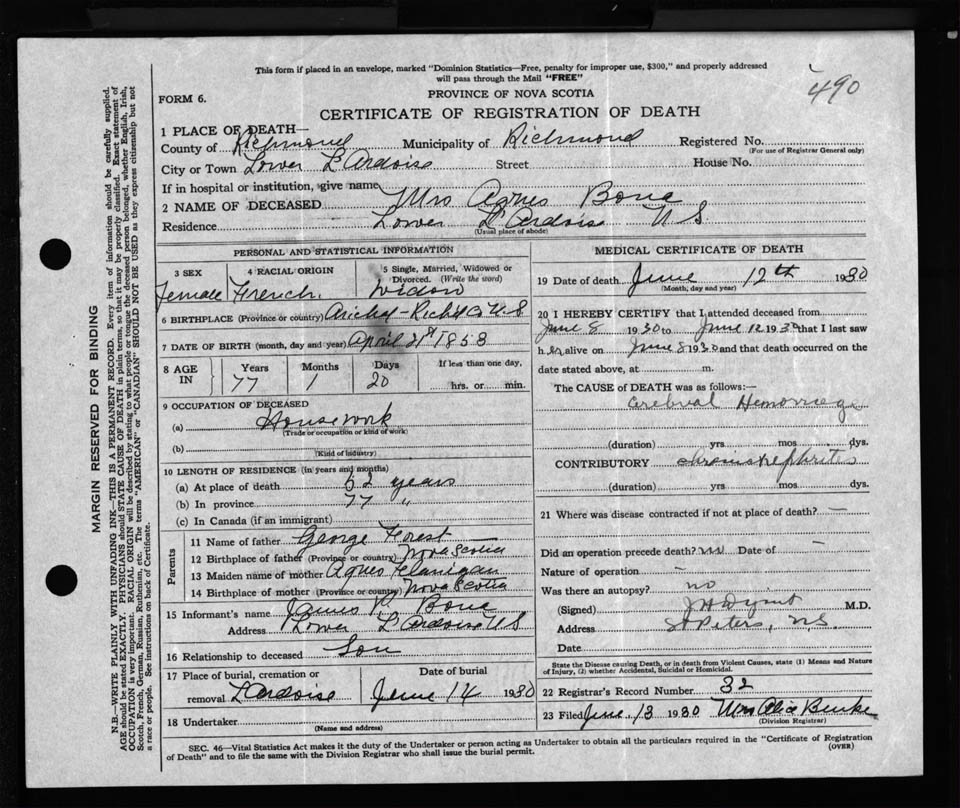 This form if placed in an envelope, marked "Dominion Statistics—Free, penalty for improper use, $300," and properly addressed
will pass through the Mail "FREE"
490
FORM 6.
PROVINCE OF NOVA SCOTIA
CERTIFICATE OF REGISTRATION OF DEATH
1 PLACE OF DEATH—
County of Richmond Municipality of Richmond Registered No.
(For use of Registrar General only)
City or Town Lower L'Ardoise Street House No.
If in hospital or institution, give name
2 NAME OF DECEASED Mrs Agnes Bone
Residence Lower L'Ardoise N S
(Usual place of abode)
PERSONAL AND STATISTICAL INFORMATION
3 SEX Female
4 RACIAL ORIGIN French
5 Single, Married, Widowed or Divorced. (Write the word) Widow
6 BIRTHPLACE (Province or country) Arichat - Rich'd Co N.S
7 DATE OF BIRTH (month, day and year) April 21st 1853
8 AGE IN Years 77 Months 1 Days 20 If less than one day, hrs. or min.
9 OCCUPATION OF DECEASED
(a) Housework
(Trade or occupation or kind of work)
(b)
(Kind of industry)
10 LENGTH OF RESIDENCE (in years and months)
(a) At place of death 52 years
(b) In province 77 "
(c) In Canada (if an immigrant)
Parents
11 Name of father George Forest
12 Birthplace of father (Province or country) Nova Scotia
13 Maiden name of mother Agnes Flanigan
14 Birthplace of mother (Province or country) Nova Scotia
15 Informant's name James Bone
Address Lower L'Ardoise N S
16 Relationship to deceased Son
17 Place of burial, cremation or removal L'Ardoise
Date of burial June 14 1930
18 Undertaker
(Name and address)
MEDICAL CERTIFICATE OF DEATH
19 Date of death June 12th 1930
(Month, day and year)
20 I HEREBY CERTIFY that I attended deceased from
June 8 1930 to June 12 1930 that I last saw
her alive on June 8 1930 and that death occurred on the
date stated above, at m.
The CAUSE of DEATH was as follows:—
Cerebral Hemorrage
(duration) yrs mos dys.
CONTRIBUTORY chronic nephritis
(duration) yrs. mos. dys.
21 Where was disease contracted if not at place of death? —
Did an operation precede death? no Date of —
Nature of operation —
Was there an autopsy? no
(Signed) M.D.
Address St Peters, N.S.
Date
State the Disease causing Death, or in death from Violent Causes, state (1) Means and Nature
of Injury, (2) whether Accidental, Suicidal or Homicidal.
22 Registrar's Record Number 32
23 Filed June 13 1930 Mrs Alice Burke
(Division Registrar)
SEC. 46—Vital Statistics Act makes it the duty of the Undertaker or person acting as Undertaker to obtain all the particulars required in the "Certificate of Registration
of Death" and to file the same with the Division Registrar who shall issue the burial permit. (OVER)
MARGIN RESERVED FOR BINDING
N.B.—WRITE PLAINLY WITH UNFADING INK—THIS IS A PERMANENT RECORD. Every item of information should be carefully supplied.
AGE should be stated EXACTLY. PHYSICIANS should STATE CAUSE OF DEATH in plain terms, so that it may be properly classified. Exact statement of
OCCUPATION is very important. RACIAL ORIGIN will be described by stating to what people or tongue the deceased person belonged, whether English, Irish,
Scotch, French, German, Russian, Ruthenian, etc. The terms "AMERICAN" or "CANADIAN" SHOULD NOT BE USED as they express citizenship but not
a race or people. See instructions on back of Certificate.